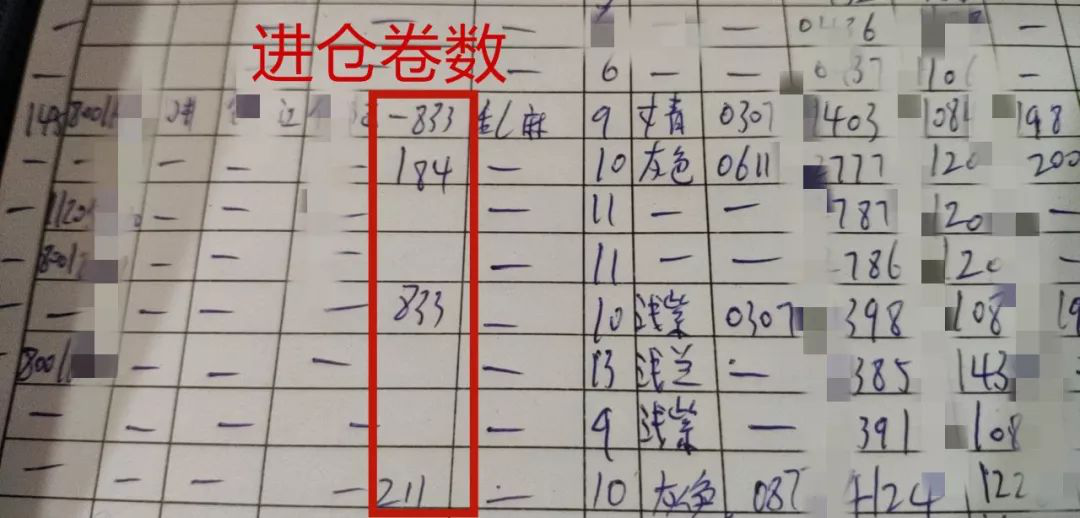 进仓卷数
0436
6 — — 037 106 —
-833 麻 9 丈青 0307 1403 108 198
— — — — 184 — 10 灰色 0611 2777 120 200
— 1120 — — — — 11 — — 787 120 —
— 8001 — — — — 11 — — 786 120 —
— — — — — 833 — 10 浅紫 0307 398 108 19
8001 — — — — 13 浅兰 — 385 143
— — — — — 9 浅紫 — 391 108
— — — — 211 — 10 灰色 087 1124 122